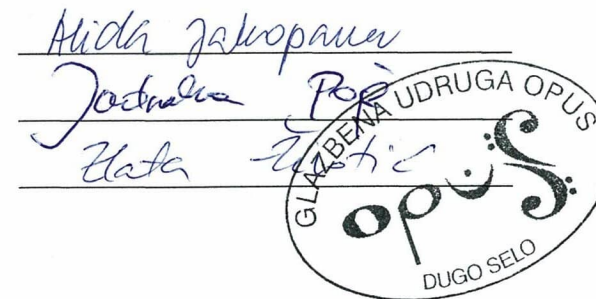 Alida Jakopanec
Jadranka Pop
Zlata Živstić
GLAZBENA UDRUGA OPUS
opus
DUGO SELO